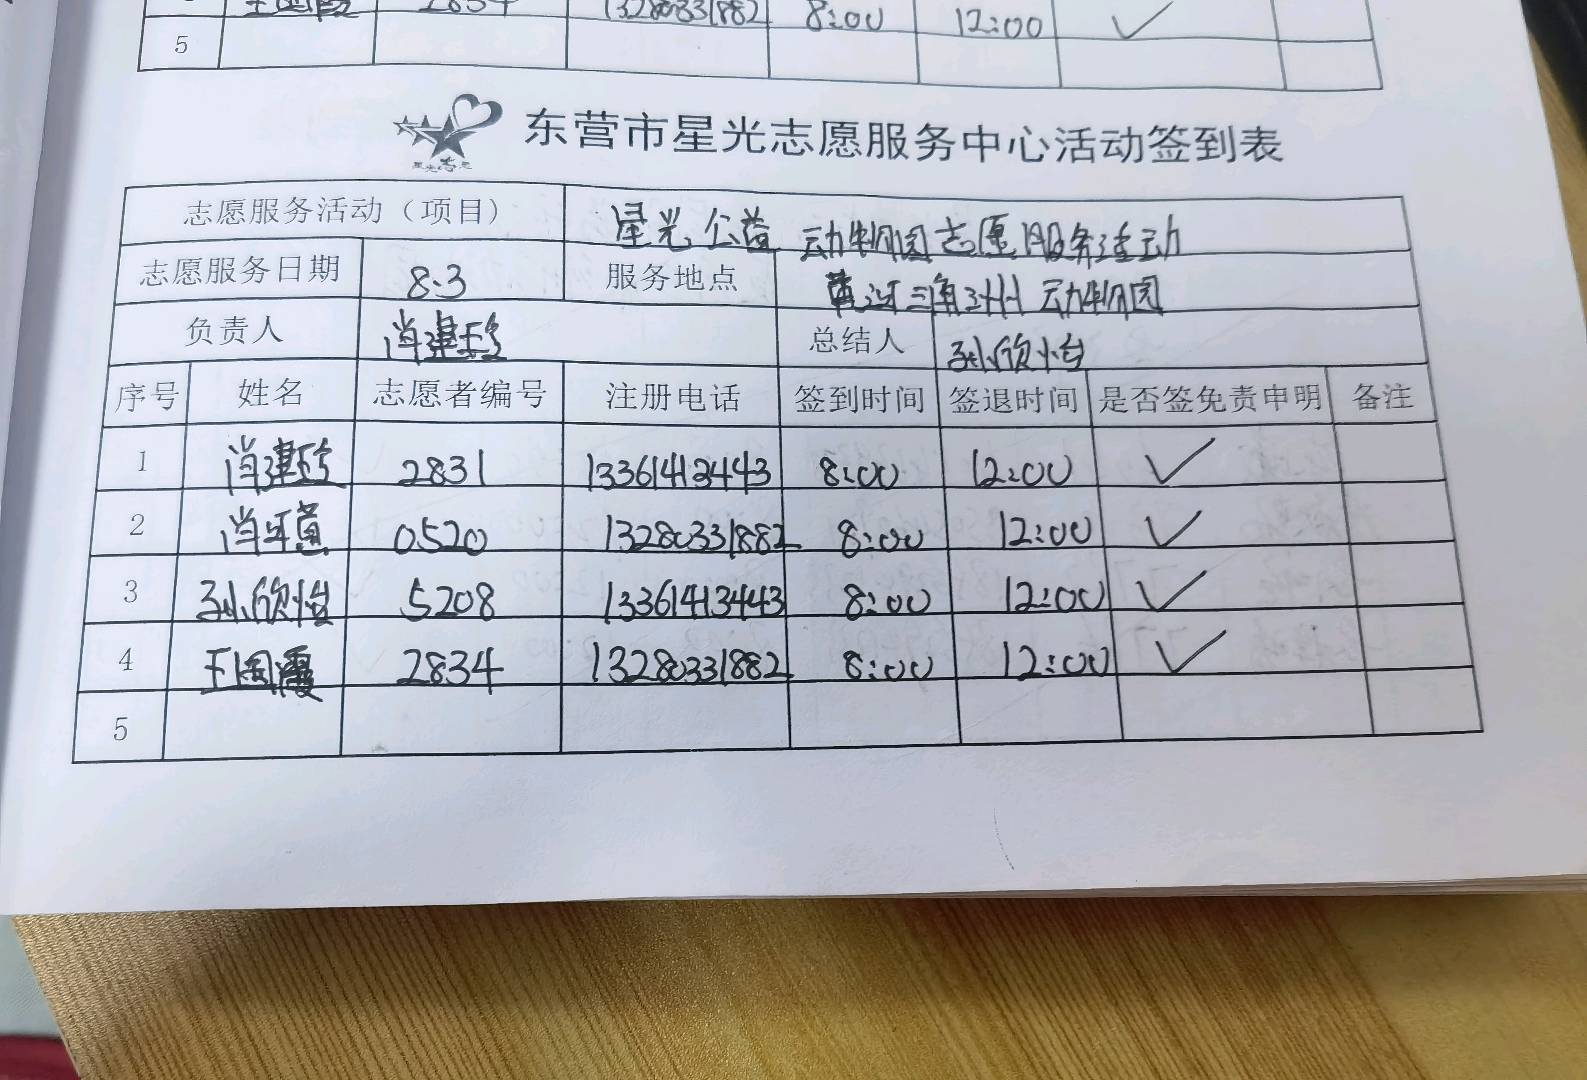 2834 13280331882 8:00 12:00 ✓
5
东营市星光志愿服务中心活动签到表
志愿服务活动（项目） 星光公益 动物园志愿服务活动
志愿服务日期 8.3 服务地点 黄河三角洲动物园
负责人 肖建珍 总结人 孙欣怡
序号 姓名 志愿者编号 注册电话 签到时间 签退时间 是否签免责申明 备注
1 肖建珍 2831 13361413443 8:00 12:00 ✓
2 0520 13280331882 8:00 12:00 ✓
3 孙欣怡 5208 13361413443 8:00 12:00 ✓
4 王国霞 2834 13280331882 8:00 12:00 ✓
5